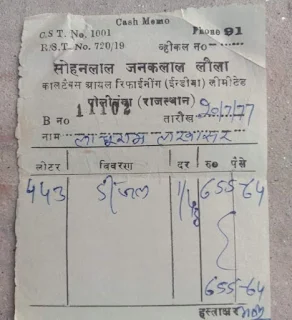 Cash Memo
C.S.T. No. 1001 Phone 91
R.S.T. No. 720/19 व्हीकल न०
सोहनलाल जनकलाल लीला
कालटैक्स आयल रिफाईनींग (ईन्डीया) लीमीटेड
पीलीबंगा (राजस्थान)
B no 11102 तारीख 20/7/77
नाम लाधुराम लाखासर
लीटर विवरण दर रु० पैसे
443 डीजल 1/48 655-64
655-64
हस्ताक्षर